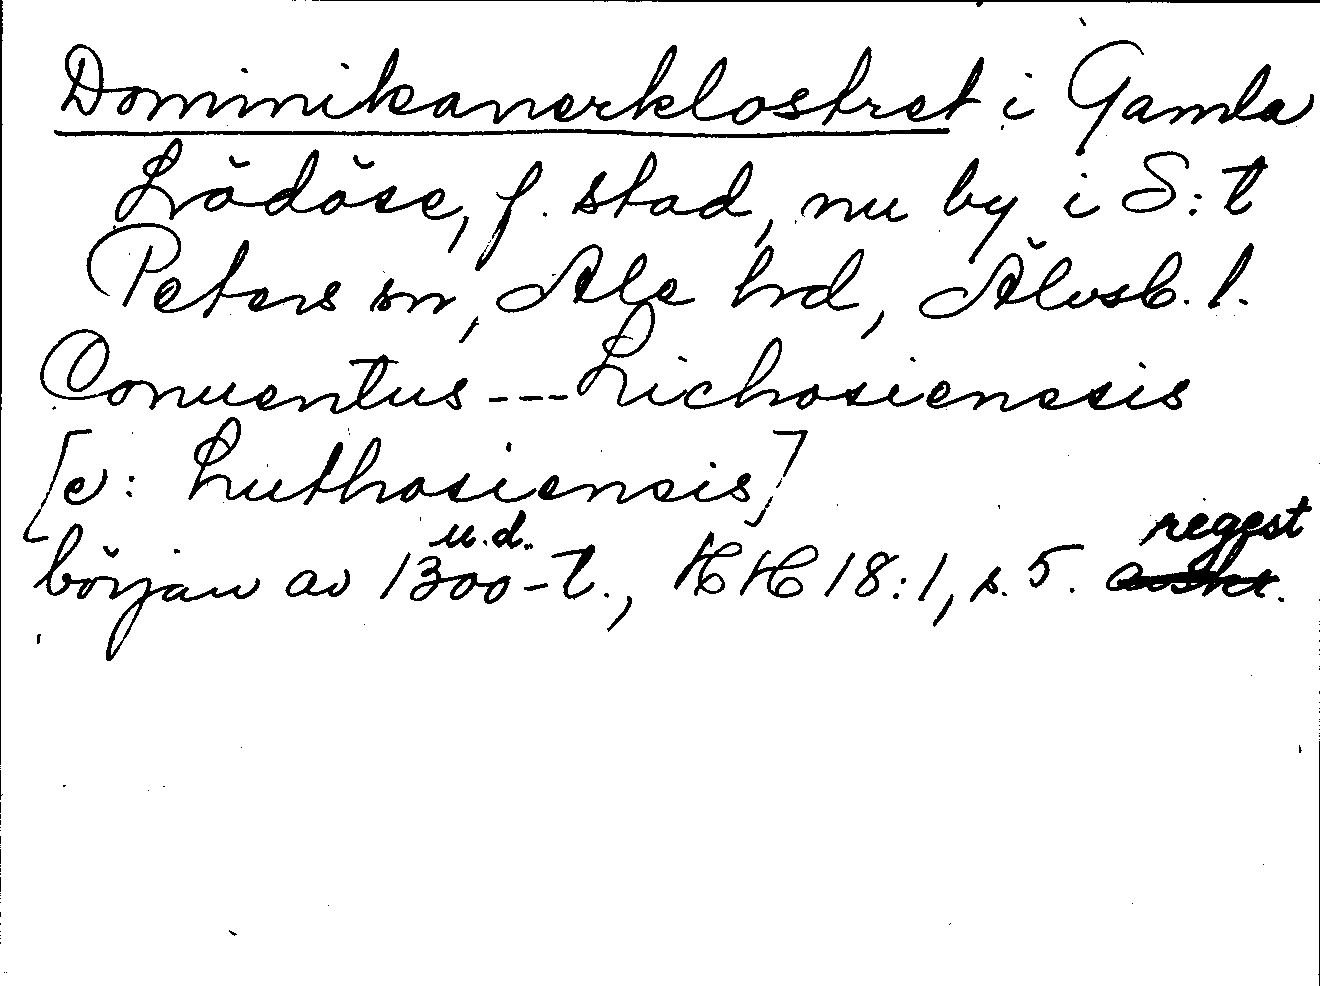 Dominikanerklostret i Gamla
Lödöse, f. stad, nu by i S:t
Peters sn, Ale hd, Älvsb. l.
Conuentus --- Lichosiensis
[ɔ: Luthosiensis]
u.d. regest
början av 1300-t., HH 18:1, s. 5.